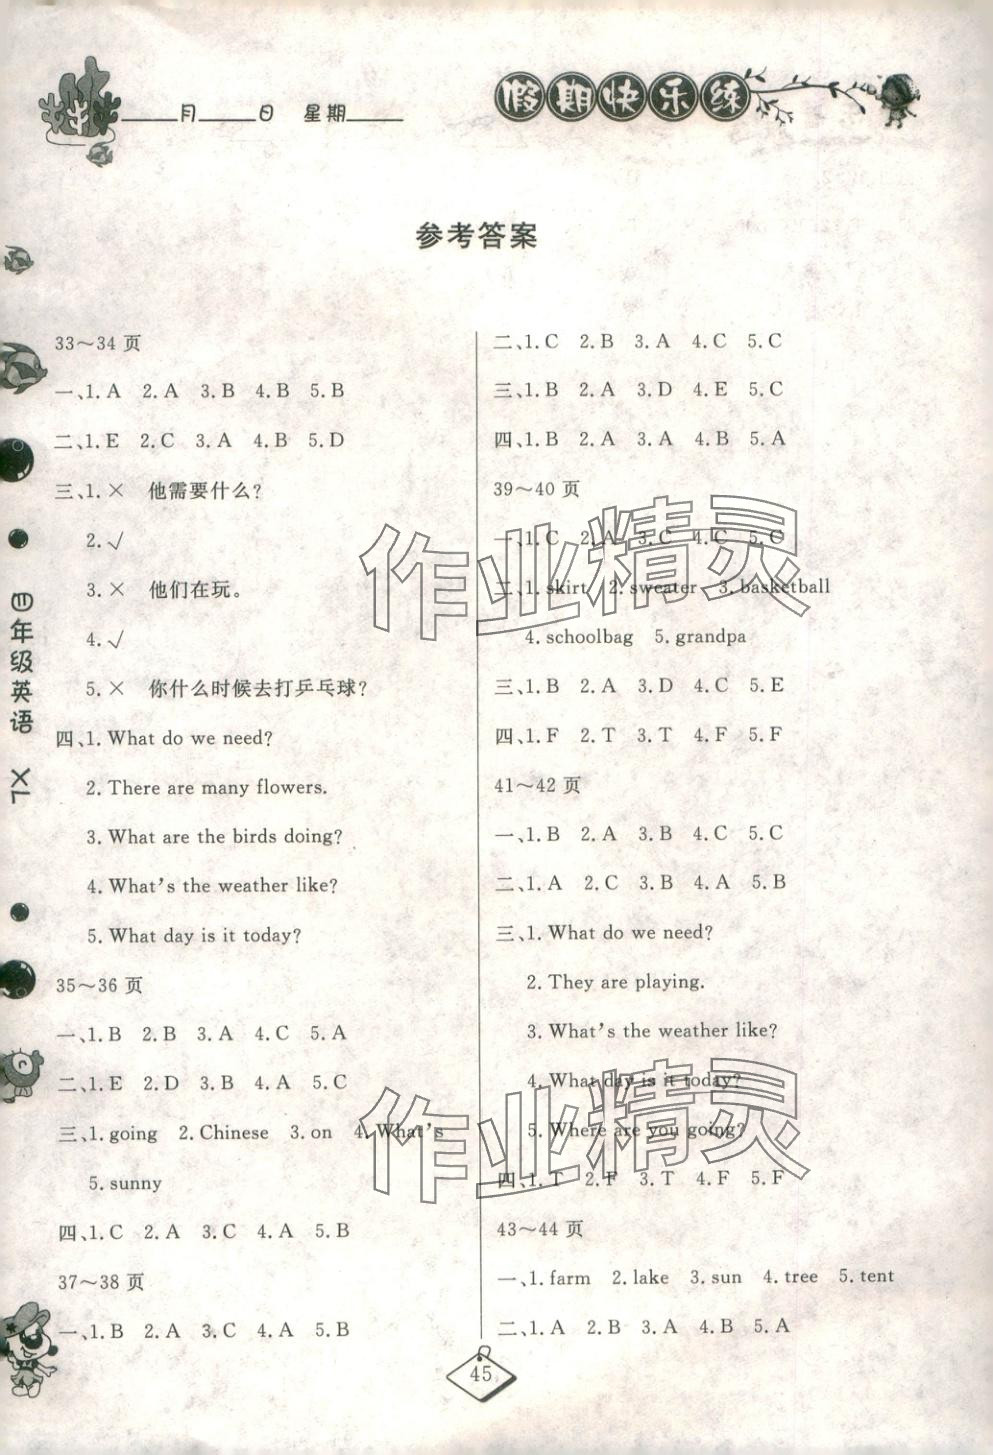 ____月____日 星期____
假期快乐练
参考答案
33～34 页
一、1. A 2. A 3. B 4. B 5. B
二、1. E 2. C 3. A 4. B 5. D
三、1. × 他需要什么?
2. √
3. × 他们在玩。
4. √
5. × 你什么时候去打乒乓球?
四、1. What do we need?
2. There are many flowers.
3. What are the birds doing?
4. What's the weather like?
5. What day is it today?
35～36 页
一、1. B 2. B 3. A 4. C 5. A
二、1. E 2. D 3. B 4. A 5. C
三、1. going 2. Chinese 3. on 4. What's
5. sunny
四、1. C 2. A 3. C 4. A 5. B
37～38 页
一、1. B 2. A 3. C 4. A 5. B
二、1. C 2. B 3. A 4. C 5. C
三、1. B 2. A 3. D 4. E 5. C
四、1. B 2. A 3. A 4. B 5. A
39～40 页
一、1. C 2. A 3. C 4. C 5. C
二、1. skirt 2. sweater 3. basketball
4. schoolbag 5. grandpa
三、1. B 2. A 3. D 4. C 5. E
四、1. F 2. T 3. T 4. F 5. F
41～42 页
一、1. B 2. A 3. B 4. C 5. C
二、1. A 2. C 3. B 4. A 5. B
三、1. What do we need?
2. They are playing.
3. What's the weather like?
4. What day is it today?
5. Where are you going?
四、1. T 2. F 3. T 4. F 5. F
43～44 页
一、1. farm 2. lake 3. sun 4. tree 5. tent
二、1. A 2. B 3. A 4. B 5. A
四年级英语 XL
45
作业精灵
作业精灵